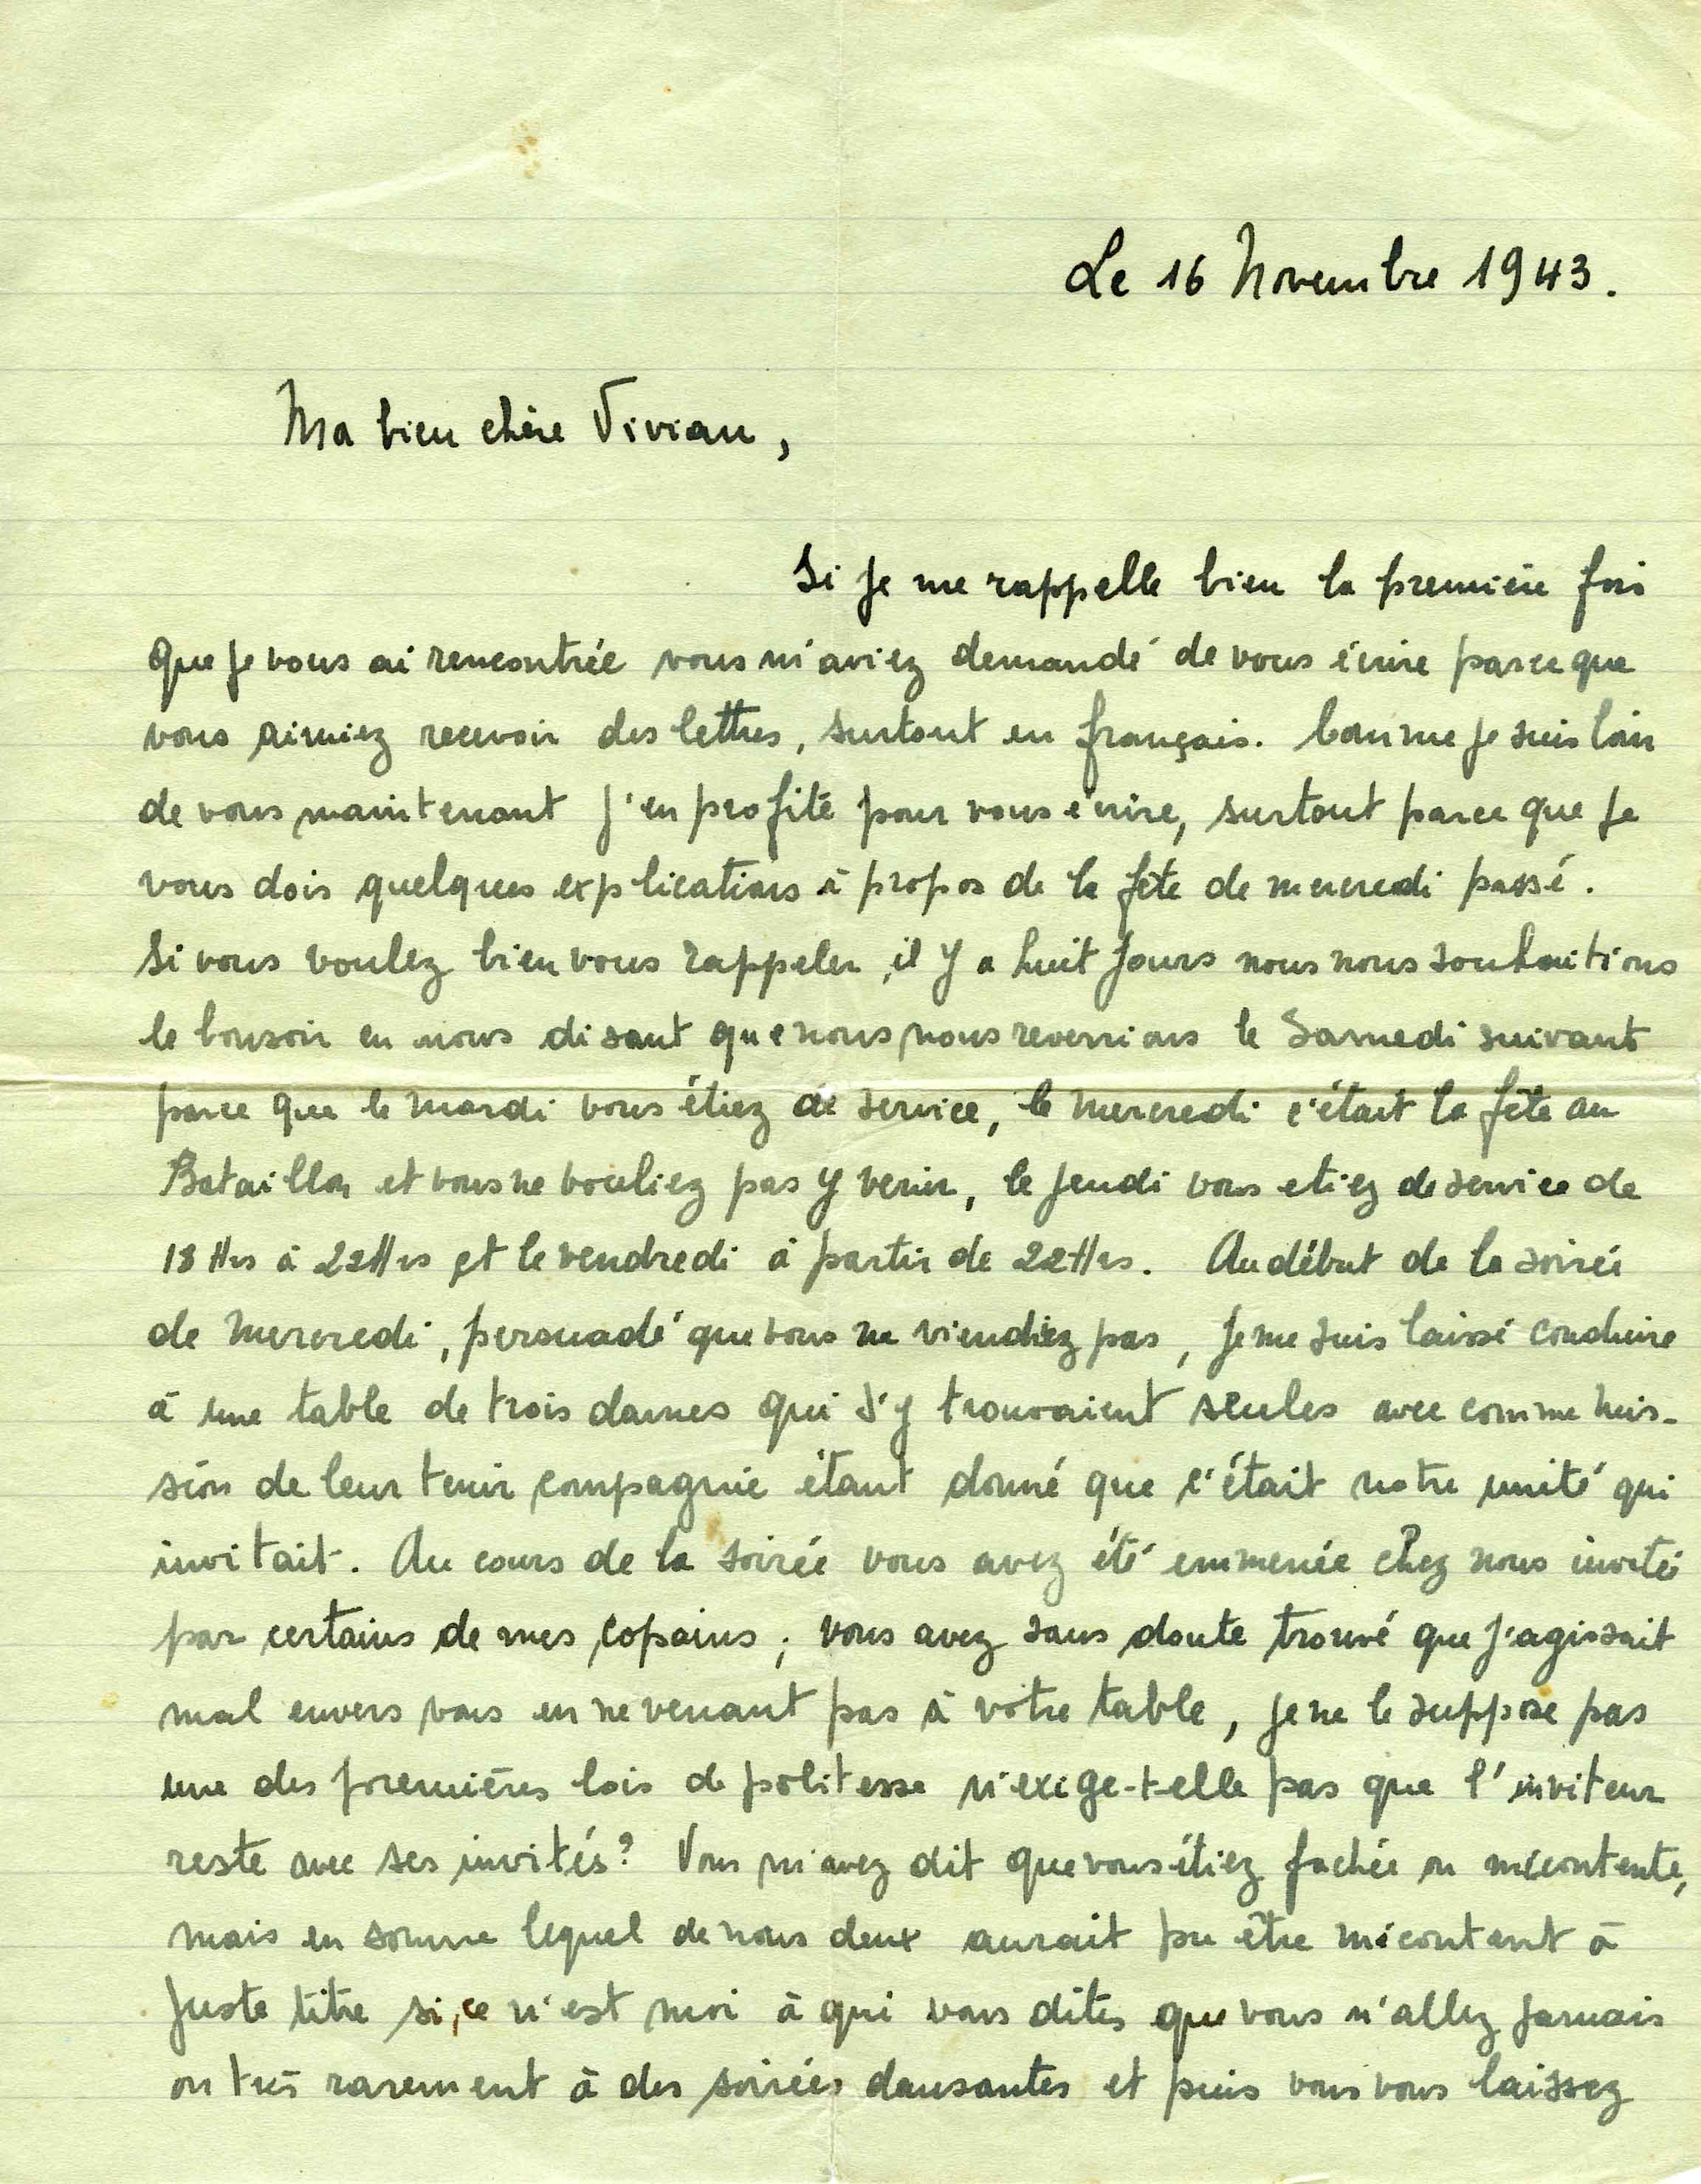 Le 16 Novembre 1943.
Ma bien chère Vivian,
Si je me rappelle bien la première fois
que je vous ai rencontrée vous m'aviez demandé de vous écrire parce que
vous aimiez recevoir des lettres, surtout en français. Comme je suis loin
de vous maintenant j'en profite pour vous écrire, surtout parce que je
vous dois quelques explications à propos de la fête de mercredi passé.
Si vous voulez bien vous rappeler, il y a huit jours nous nous souhaitions
le bonsoir en nous disant que nous nous reverrions le Samedi suivant
parce que le mardi vous étiez de service, le mercredi c'était la fête au
Bataillon et vous ne vouliez pas y venir, le jeudi vous etiez de service de
18 Hrs à 22 Hrs et le vendredi à partir de 22 Hrs. Au début de la soirée
de mercredi, persuadé que vous ne viendriez pas, je me suis laissé conduire
à une table de trois dames qui s'y trouvaient seules avec comme mis-
sion de leur tenir compagnie étant donné que c'était notre unité qui
invitait. Au cours de la soirée vous avez été emmenée chez nous invitée
par certains de mes copains; vous avez sans doute trouvé que j'agissait
mal envers vous en ne venant pas à votre table, je ne le suppose pas
une des premières lois de politesse n'exige-t-elle pas que l'inviteur
reste avec ses invités? Vous m'avez dit que vous étiez fachée ou mécontente,
mais en somme lequel de nous deux aurait pu être mécontent à
juste titre si, ce n'est moi à qui vous dites que vous n'allez jamais
ou très rarement à des soirées dansantes et puis vous vous laissez